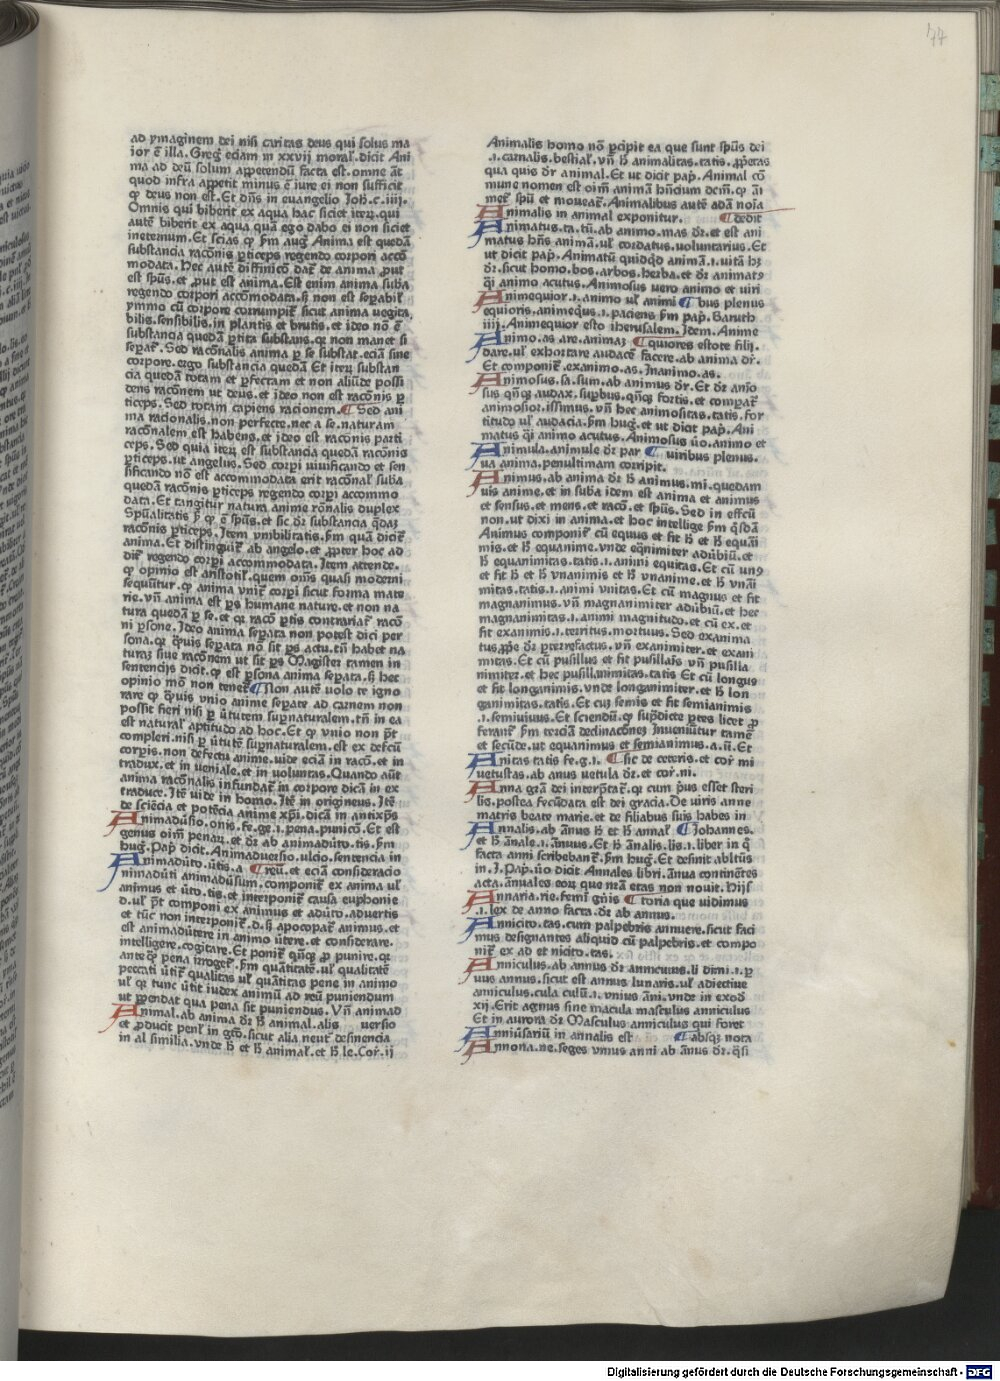 ad ymaginem dei nisi caritas deus qui solus ma
ior ē illa. Greg̃ eciam in xxvij moral̃. dicit Ani
ma ad deū solum appetendū facta est. omne āt
quod infra appetit minus ē iure ei non sufficit
ꝙ deus non est. Et dñs in euangelio Joh̃. c. iiij.
Omnis qui biberit ex aqua hac siciet iterꝝ. qui
autē biberit ex aqua quā ego dabo ei non siciet
ineternum. Et scias ꝙ ẜm aug̃ Anima est quedā
substancia racōnis ꝑticeps regendo corpori accō
modata. Hec autē diffinicō dat̃ de anima ꝓut
est sp̄us. et ꝓut est anima. Est enim anima suba
regendo corpori accōmodata. ẜꝫ non est sepabil̃
ymmo cū corpore corrumpit̃ sicut anima vegita
bilis. sensibilis. in plantis et brutis. et ideo nō ē
substancia quedā ꝑtita substans. qꝛ non manet si
sepat̃. Sed racōnalis anima ꝑ se substat. eciā sine
corpore. ergo substancia quedā Et iterꝝ substan
cia quedā totam et ꝑfectam et non aliūde possi
dens racōnem ut deus. et ideo non est racōnis ꝑ
ticeps. Sed totam capiens racionem. Sed ani
ma racionalis. non perfecte. nec a se. naturam
racōnalem est habens. et ideo est racōnis parti
ceps. Sed quia iterꝝ est substancia quedā racōnis
ꝑticeps. ut angelus. Sed corpi uiuificando et sen
sificando nō est accommodata erit racōnal̃ suba
quedā racōnis ꝑticeps regendo corpi accommo
data. Et tangitur natura anime rōnalis duplex
Spūalitatis ꝑ ꝙ ē sp̄us. et sic dꝛ substancia q̄daꝫ
racōnis ꝑticeps. Item vnibilitatis. ẜm quā dicit̃
anima. Et distinguit̃ ab angelo. et ꝓpter hoc ad
dit̃ regendo corpi accommodata. Item attende.
ꝙ opinio est aristotil̃. quem om̄s quasi moderni
sequūtur. ꝙ anima vnit̃ corpi sicut forma mate
rie. vn̄ anima est ꝑs humane nature. et non na
tura quedā ꝑ se. et qꝛ racō ꝑtis contrariat̃ racō
ni ꝑsone. Ideo anima sepata non potest dici per
sona. qꝛ q̄uis sepata nō sit ꝑs actu. tn̄ habet na
turaꝫ siue racōnem ut sit ꝑs Magister tamen in
sentencijs dicit. ꝙ est ꝑsona anima sepata. ẜꝫ hec
opinio mō non tenet̃ Non autē uolo te igno
rare ꝙ q̄uis vnio anime sepate ad carnem non
possit fieri nisi ꝑ ūtutem suꝑnaturalem. tn̄ in ea
est natural̃ aptitudo ad hoc. Et ꝙ vnio non p̄t
compleri. nisi ꝑ ūtutē suꝑnaturalem. est ex defcū
corꝑis. non defectu anime. uide eciā in racō. et in
tradux. et in veniale. et in voluntas. Quando aūt
anima racōnalis infundat̃ in corpore dicā in ex
traduce. Itē uide in homo. Itē in origineus. Itē
de sciēcia et potēcia anime xp̄i. dicā in antixp̄s
Animadūsio. onis. fe. ge. i. pena. punicō. Et est
genus oim̄ penaꝝ. et dꝛ ab animadūto. tis. ẜm
hug̃. Pap̄ dicit. Animaduersio. ulcio. sentencia in
Animadūto. ūtis. a reū. et eciam consideracio
nimadūti animadūsum. componit̃ ex anima ul̃
animus et ūto. tis. et interponit̃ causa euphonie
d. ul̃ p̄t componi ex animus et adūto. advertis
et tūc non interponit̃. d. ẜꝫ apocopat̃ animus. et
est animadūtere in animo ūtere. et considerare.
intelligere. cogitare. Et ponit̃ qn̄qꝫ ꝓ punire. qꝛ
anteqꝫ pena irroget̃. ẜm quātitatē. ul̃ qualitatē
peccati ūtit̃ qualitas ul̃ quātitas pene in animo
ul̃ qꝛ tunc ūtit iudex animū ad reū puniendum
ut ꝑpendat qua pena sit puniendus. Vn̄ animad
Animal. ab anima dꝛ ħ animal. alis uersio
et ꝓducit penl̃ in gtō. sicut alia neut̃ desinencia
in al similia. vnde ħ et ħ animal̃. et ħ le. Cor̃. ij
Animalis homo nō ꝑcipit ea que sunt sp̄us dei
.i. carnalis. bestial̃. vn̄ ħ animalitas. tatis. ꝓp̄etas
qua quis dꝛ animal. Et ut dicit pap̄. Animal cō
mune nomen est oim̄ animā hn̄cium dcm̄. ꝙ āi
met̃ spū et moueat̃. Animalibus autē adā noīa
Animalis in animal exponitur. dedit
Animatus. ta. tū. ab animo. mas dꝛ. et est ani
matus hn̄s animā. ul̃ cordatus. voluntarius. Et
ut dicit pap̄. Animatū quidqd̄ animā. i. uitā hꝫ
dꝛ. sicut homo. bos. arbos. herba. et dꝛ animatꝰ
q̄i animo acutus. Animosus uero animo et uiri
Animequior. i. animo ul̃ animi bus plenus
equioris. animequs. i. paciens ẜm pap̄. Baruth
iiij. Animequior esto iherusalem. Item. Anime
Animo. as. are. animaꝫ quiores estote filij.
dare. ul̃ exhortare. audacē facere. ab anima dꝛ.
Et componit̃. exanimo. as. Inanimo. as.
Animosus. sa. sum. ab animus dꝛ. Et dꝛ anīo
sus qn̄qꝫ audax. suꝑbus. qn̄qꝫ fortis. et compat̃
animosior. issimus. vn̄ hec animositas. tatis. for
titudo ul̃ audacia. ẜm hug̃. et ut dicit pap̄. Ani
matus q̄i animo acutus. Animosus ūo. animo et
Animula. animule dꝛ par uiribus plenus.
ua anima. penultimam corripit.
Animus. ab anima dꝛ ħ animus. mi. quedam
uis anime. et in suba idem est anima et animus
et sensus. et mens. et racō. et sp̄us. Sed in effcū
non. ut dixi in anima. et hoc intellige ẜm q̄sdā
Animus componit̃ cū equus et fit ħ et ħ equāi
mis. et ħ equanime. vnde eqnimiter adūbiū. et
ħ equanimitas. tatis. i. animi equitas. Et cū unꝰ
et fit ħ et ħ vnanimis et ħ vnanime. et ħ vnāi
mitas. tatis. i. animi vnitas. Et cū magnus et fit
magnanimus. vn̄ magnanimiter adūbiū. et hec
magnanimitas. i. animi magnitudo. et cū ex. et
fit exanimis. i. territus. mortuus. Sed exanima
tus. ꝓpe dꝛ ꝑterrefactus. vn̄ exanimiter. et exani
mitas. Et cū pusillus et fit pusillaīs vn̄ pusilla
nimiter. et hec pusillanimitas. tatis Et cū longus
et fit longanimis. vnde longanimiter. et ħ lon
ganimitas. tatis. Et cuꝫ semis et fit semianimis
.i. semiuiuus. Et sciendū. ꝙ sup̄dicte ꝑtes licet ꝓ
ferant̃ ẜm terciā declinacōnes Inueniūtur tamē
et secūde. ut equanimus et semianimus. a. ū. Et
Anitas tatis fe. g. i. sic de ceteris. et cor̃ mi
uetustas. ab anus uetula dꝛ. et cor̃. ni.
Anna gr̄a dei interp̄tat̃. qꝛ cum p̄us esset steri
lis. postea fecūdata est dei gracia. De uiris anne
matris beate marie. et de filiabus suis habes in
Annalis. ab ānus ħ et ħ annal̃ Johannes.
et ħ ānale. i. ānuus. Et ħ ānalis. lis. i. liber in q̄
facta anni scribebant̃. ẜm hug̃. Et definit abltūs
in. J. Pap̄. ūo dicit. Annales libri. ānua continētes
acta. ānuales eoꝝ que nr̄a etas non nouit. Hijs
Annaria. rie. femī gn̄is toria que uidimus
.i. lex de anno facta. dꝛ ab annus.
Annicito. tas. cum palpebris annuere. sicut faci
mus designantes aliquid cū palpebris. et compo
nit̃ ex ad et nicito. tas.
Anniculus. ab annus dꝛ anniculus. li dimi. i. ꝑ
uus annus. sicut est annus lunaris. ul̃ adiectiue
anniculus. cula culū. i. vnius āni. vnde in exod̃
xij. Erit agnus sine macula masculus anniculus
Et in aurora dꝛ Masculus anniculus qui foret
Anniūsariū in annalis est absqꝫ nota
Annona. ne. seges vnius anni ab ānus dꝛ. q̄si
Digitalisierung gefördert durch die Deutsche Forschungsgemeinschaft - DFG